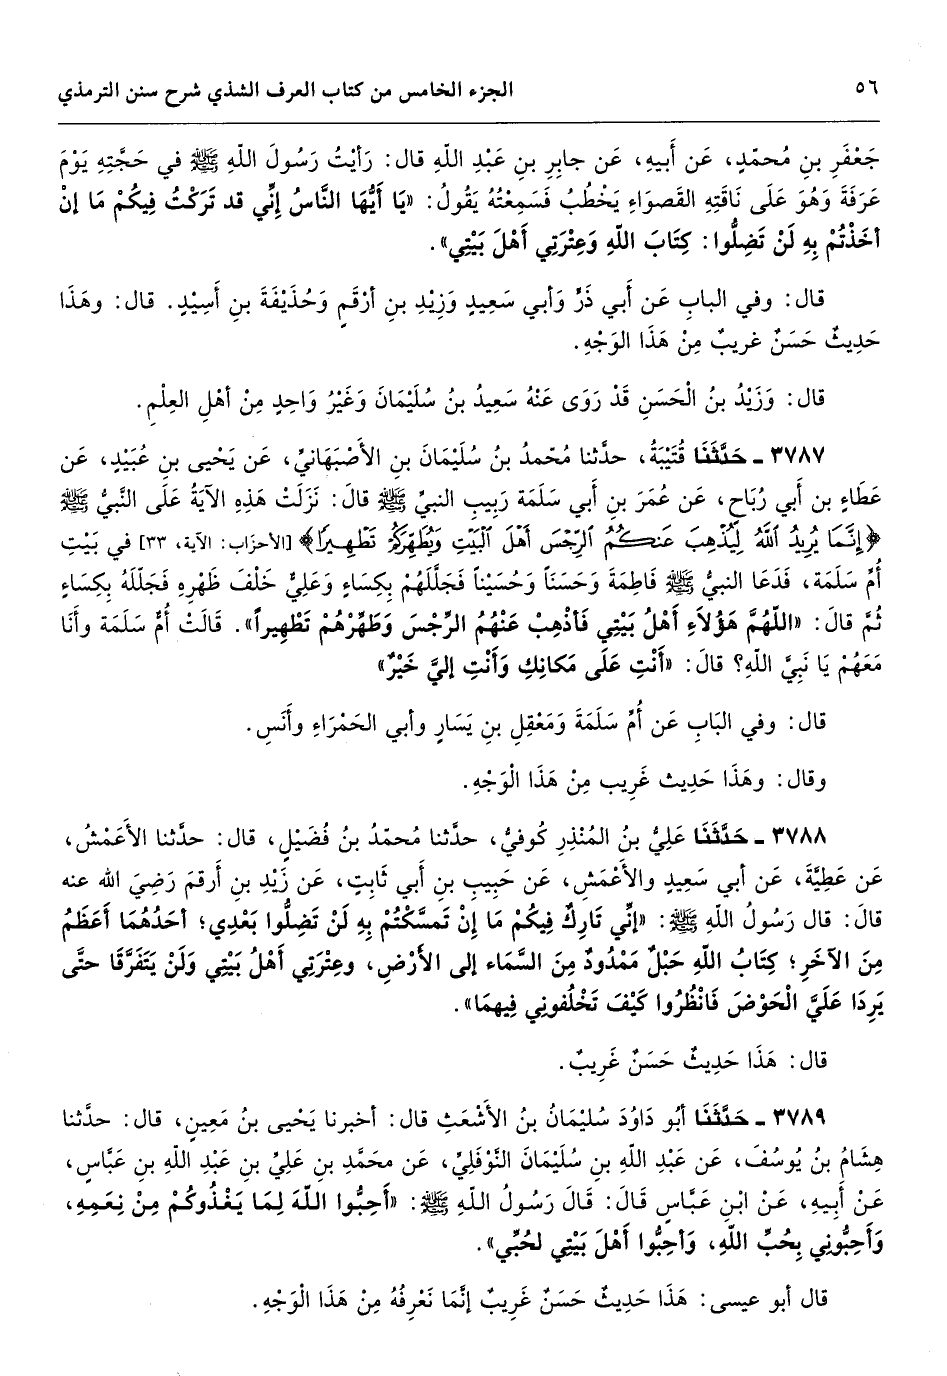 ٥٦ الجزء الخامس من كتاب العرف الشذي شرح سنن الترمذي
جَعْفَرِ بنِ مُحمّدٍ، عَن أَبيهِ، عَن جابِرِ بنِ عَبْدِ اللّهِ قال: رَأيْتُ رَسُولَ اللّهِ ﷺ في حَجَّتِهِ يَوْمَ
عَرَفَةَ وَهُوَ عَلَى نَاقَتِهِ القَصوَاءِ يَخْطُبُ فَسَمِعْتُهُ يَقُولُ: «يَا أَيُّهَا النَّاسُ إِنِّي قد تَرَكْتُ فِيكُمْ مَا إنْ
أخَذْتُمْ بِهِ لَنْ تَضِلُّوا: كِتَابَ اللّهِ وَعِتْرَتِي أَهْلَ بَيْتِي».
قال: وفي البابِ عَن أَبي ذَرٍّ وَأبي سَعيدٍ وَزِيْدِ بنِ أرْقَمٍ وَحُذَيْفَةَ بنِ أَسِيْدٍ. قال: وهَذَا
حَدِيثٌ حَسَنٌ غريبٌ مِنْ هَذَا الوَجْهِ.
قال: وَزَيْدُ بنُ الْحَسَنِ قَدْ رَوَى عَنْهُ سَعِيدُ بنُ سُلَيْمَانَ وَغَيْرُ وَاحِدٍ مِنْ أهْلِ العِلْمِ.
٣٧٨٧ ـ حَدَّثَنَا قُتَيْبَةُ، حدَّثنا مُحْمدُ بنُ سُلَيمَانَ بنِ الأَصْبَهَانيِّ، عَن يَحْيى بنِ عُبَيْدٍ، عَن
عَطَاءِ بن أبي رُبَاحٍ، عَن عُمَرَ بنِ أَبي سَلَمَة رَبِيبِ النبيِّ ﷺ قالَ: نَزَلَتْ هَذِهِ الآيَةُ عَلَى النَّبيُّ ﷺ
﴿إِنَّمَا يُرِيدُ اللَّهُ لِيُذْهِبَ عَنكُمُ الرِّجْسَ أَهْلَ الْبَيْتِ وَيُطَهِّرَكُمْ تَطْهِيراً﴾ [الأحزاب: الآية، ٣٣] في بَيْتِ
أُمِّ سَلَمَة، فَدَعَا النبيُّ ﷺ فَاطِمَةَ وَحَسَنَاً وَحُسَيْناً فَجَلَّلَهُمْ بِكِسَاءٍ وَعَلِيٌّ خَلْفَ ظَهْرِهِ فَجَلّلَهُ بِكِسَاءٍ
ثُمَّ قالَ: «اللّهُمَّ هَؤُلاَءِ أَهْلُ بَيْتِي فَأذْهِبْ عَنْهُمُ الرِّجْسَ وَطَهِّرْهُمْ تَطْهِيراً». قَالَتْ أُمُّ سَلَمَةَ وأنَا
مَعَهُمْ يَا نَبِيَّ اللّهِ؟ قالَ: «أَنْتِ عَلَى مَكانِكِ وَأَنْتِ إليَّ خَيْرٌ»
قال: وفي البَابِ عَن أُمِّ سَلَمَةَ وَمَعْقِلِ بنِ يَسَارٍ وأبي الحَمْرَاءِ وأَنَسٍ.
وقال: وهَذَا حَدِيث غَرِيب مِنْ هَذَا الْوَجْهِ.
٣٧٨٨ ـ حَدَّثَنَا عَلِيُّ بنُ المُنْذِرِ كُوفيُّ، حدَّثنا مُحمّدُ بنُ فُضَيْلٍ، قال: حدَّثنا الأعْمَشُ،
عَن عَطِيَّةَ، عَن أبي سَعِيدٍ والأعْمَشِ، عَن حَبِيبِ بنِ أَبي ثَابِتٍ، عَن زَيْدِ بنِ أرقمَ رَضِيَ الله عنه
قالَ: قال رَسُولُ اللّهِ ﷺ: «إنِّي تَارِكٌ فِيكُمْ مَا إنْ تَمسَّكْتُمْ بِهِ لَنْ تَضِلُّوا بَعْدِي؛ أحَدُهُمَا أَعَظَمُ
مِنَ الآخَرِ؛ كِتَابُ اللّهِ حَبْلٌ مَمْدُودٌ مِنَ السَّمَاء إلى الأَرْضِ، وعِتْرَتِي أَهْلُ بَيْتِي وَلَنْ يَتَفَرَّقَا حتَّى
يَرِدَا عَلَيَّ الْحَوْضَ فَانْظُرُوا كَيْفَ تَخْلُفوني فِيهِمَا».
قال: هَذَا حَدِيثٌ حَسَنٌ غَرِيبٌ.
٣٧٨٩ ـ حَدَّثَنَا أَبُو دَاوُدَ سُلَيمَانُ بنُ الأَشْعَثِ قال: أخبرنا يَحْيى بنُ مَعِينٍ، قال: حدَّثنا
هِشَامُ بنُ يُوسُفَ، عَن عَبْدِ اللّهِ بنِ سُلَيْمَانَ النَّوْفَلِيِّ، عَن محَمَّدِ بنِ عَلِيِّ بنِ عَبْدِ اللّهِ بنِ عَبَّاسٍ،
عَنْ أَبِيهِ، عَنْ ابْنِ عَبَّاسٍ قَالَ: قَالَ رَسُولُ اللّهِ ﷺ: «أَحِبُّوا اللّهَ لِمَا يَغْذُوكُمْ مِنْ نِعَمِهِ،
وَأَحِبُّونِي بِحُبِّ اللّهِ، وَأحِبُّوا أَهْلَ بَيْتِي لحُبِّي».
قال أبو عيسى: هَذَا حَدِيثٌ حَسَنٌ غَرِيبٌ إنَّمَا نَعْرِفُهُ مِنْ هَذَا الْوَجْهِ.